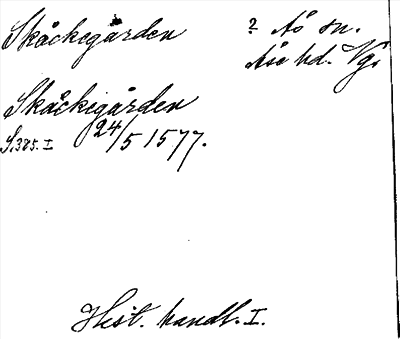 Skåckegården ? Ås sn.
Åse hd. Vg.
Skåckigården
S. 385. I 24/5 1577.
Hist. handl. I.